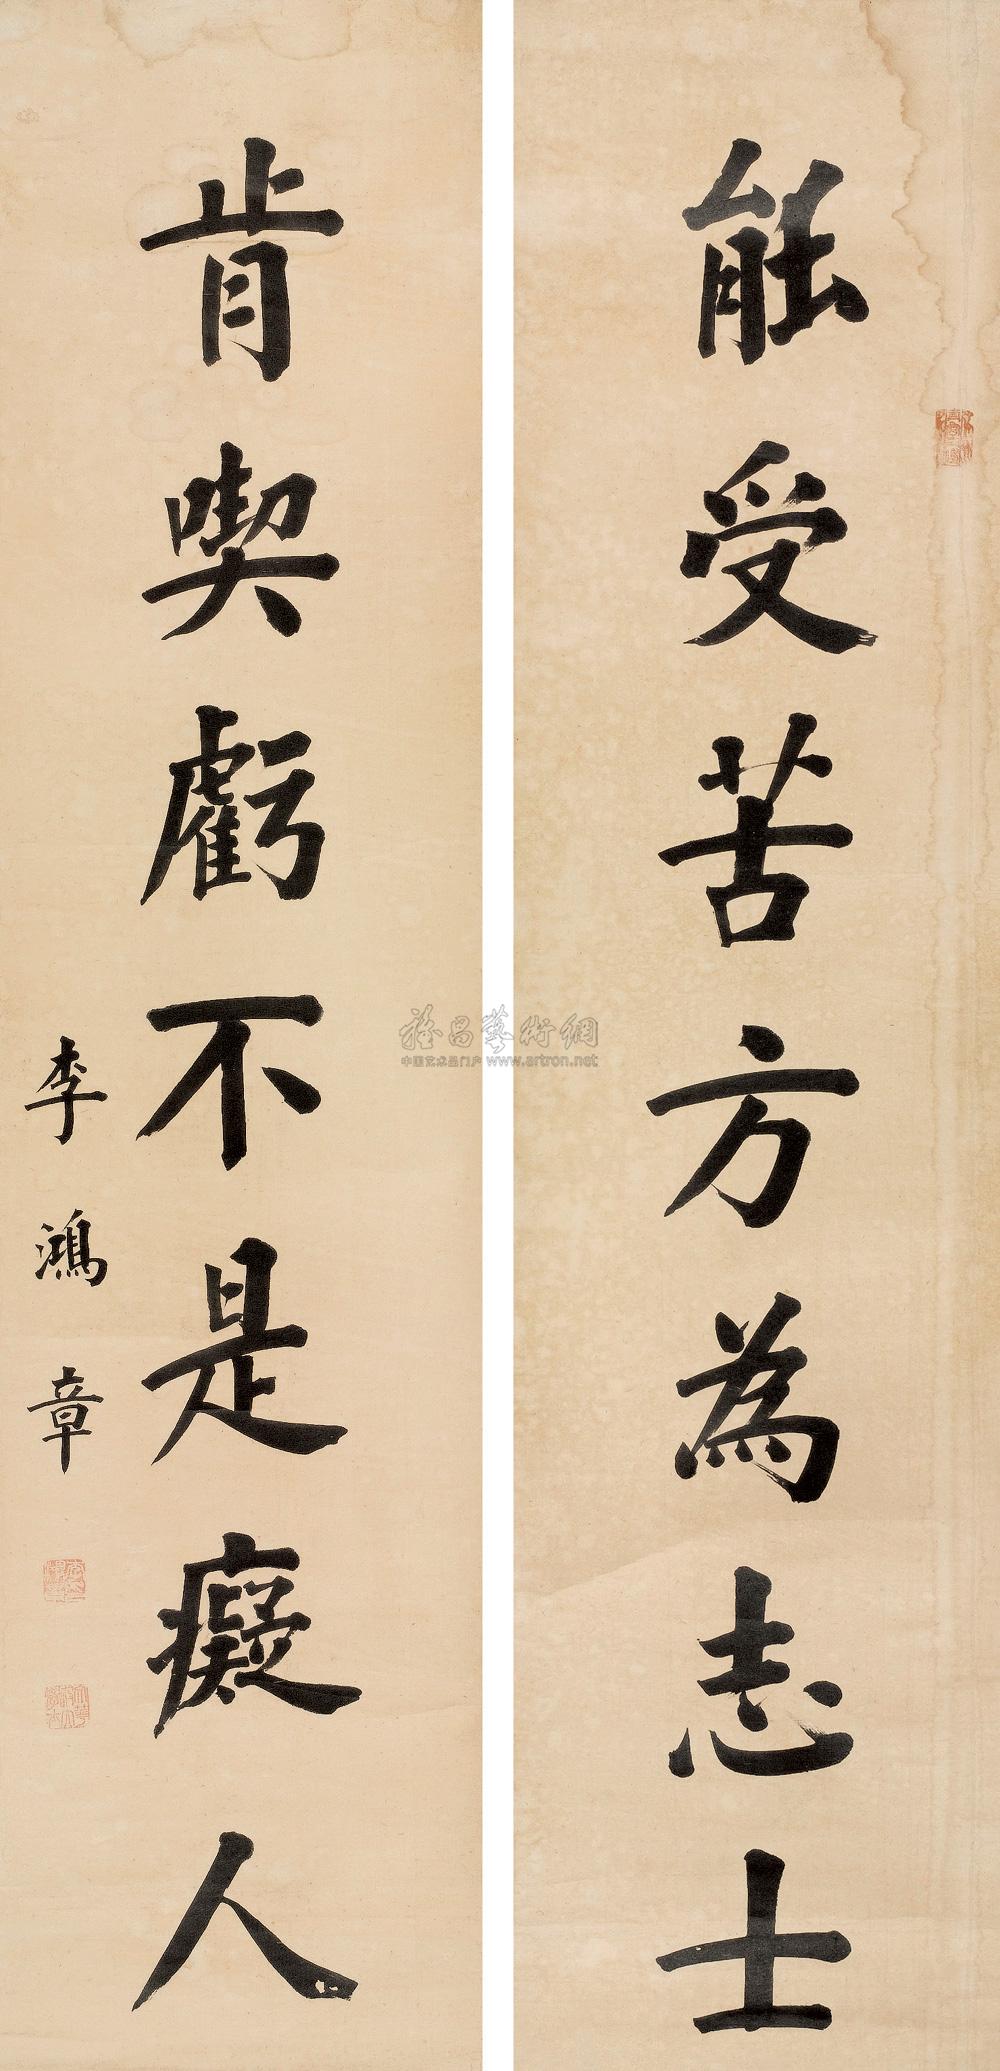 能受苦方為志士
肯喫虧不是癡人
李鴻章
雅昌藝術網
中国艺术品门户 www.artron.net